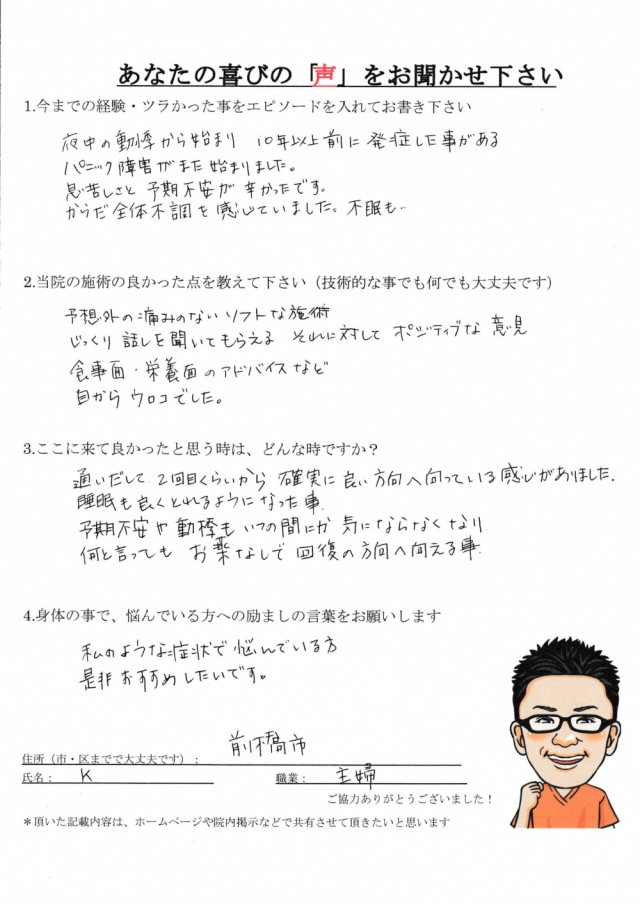 あなたの喜びの「声」をお聞かせ下さい
1.今までの経験・ツラかった事をエピソードを入れてお書き下さい
夜中の動悸から始まり 10年以上前に発症した事がある
パニック障害がまた始まりました。
息苦しさと予期不安が辛かったです。
からだ全体不調を感じていました。不眠も..
2.当院の施術の良かった点を教えて下さい（技術的な事でも何でも大丈夫です）
予想外の痛みのないソフトな施術
じっくり話しを聞いてもらえる それに対してポジティブな意見
食事面・栄養面のアドバイスなど
目からウロコでした。
3.ここに来て良かったと思う時は、どんな時ですか？
通いだして2回目くらいから確実に良い方向へ向っている感じがありました.
睡眠も良くとれるようになった事.
予期不安や動悸もいつの間にか気にならなくなり
何と言ってもお薬なしで回復の方向へ向える事.
4.身体の事で、悩んでいる方への励ましの言葉をお願いします
私のような症状で悩んでいる方
是非おすすめしたいです。
住所（市・区までで大丈夫です）： 前橋市
氏名： K 職業： 主婦
ご協力ありがとうございました！
＊頂いた記載内容は、ホームページや院内掲示などで共有させて頂きたいと思います